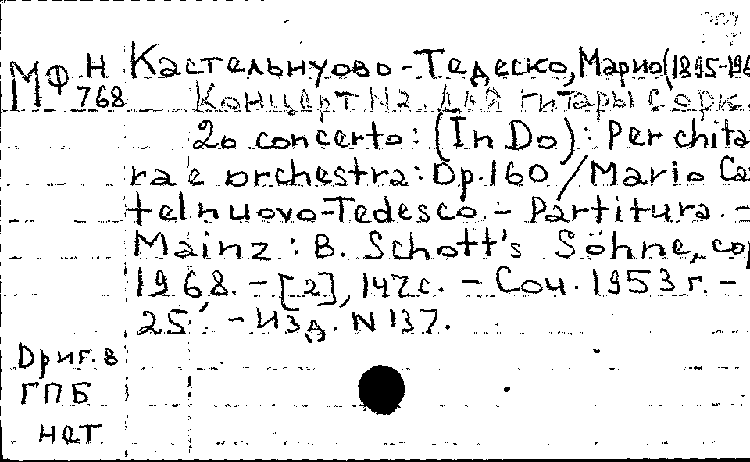 МФ Н 768
Кастельнуово-Тедеско, Марио (1895-196
Концерт N2 для гитары с орк
2o concerto: (In Do): Per chita
ra e orchestra: Op.160 / Mario Cas
telnuovo-Tedesco. - Partitura. -
Mainz: B. Schott's Söhne, cop
1968. - [2], 147 с. - Соч. 1953 г. -
25'. - Изд. N 137.
Ориг. в
ГПБ
нет